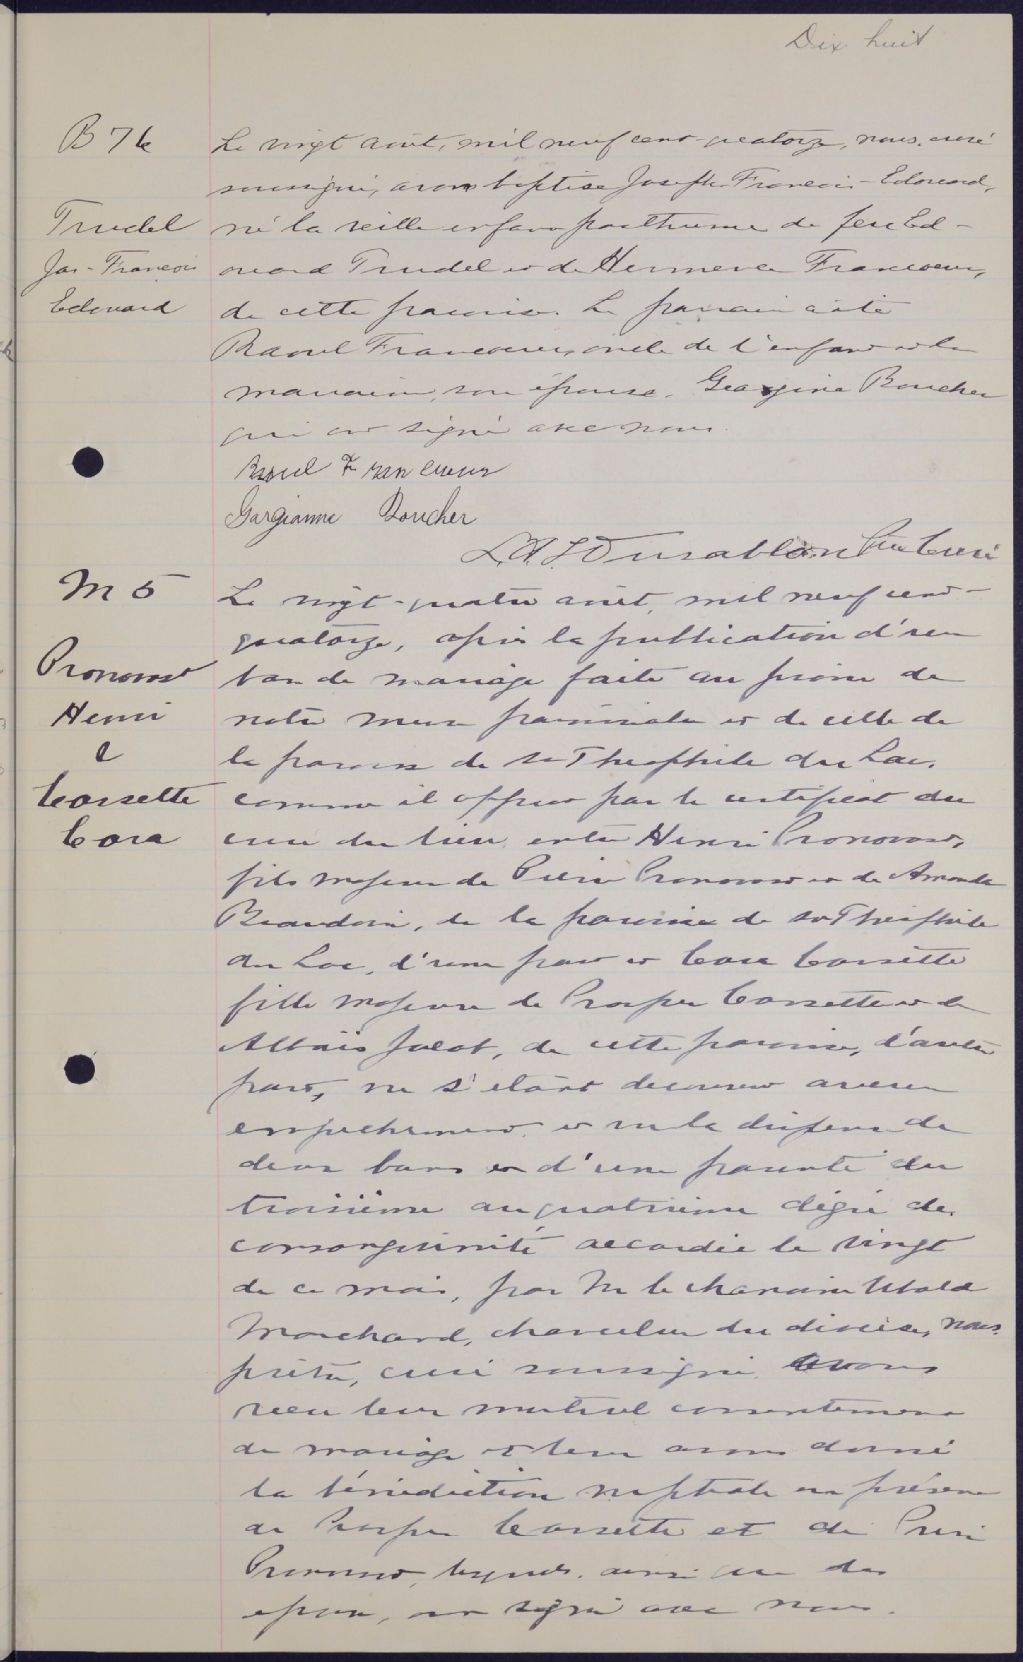 Dix huit
B 76
Trudel
Jos-François
Edouard
Le vingt août, mil neuf cent quatorze, nous, curé
soussigné, avons baptisé Joseph François-Edouard,
né la veille enfant posthume de feu Ed-
ouard Trudel et de Francoeur,
de cette paroisse. Le parrain a été
Raoul Francoeur, oncle de l'enfant et la
marraine, son épouse, Georgina Boucher
qui ont signé avec nous.
Raoul Francoeur
Gorgianne Boucher
Ptre Curé
M 5
Pronovost
Henri
&
Cossette
Cora
Le vingt-quatre août, mil neuf cent-
quatorze, après la publication d'un
ban de mariage faite au prône de
notre messe paroissiale et de celle de
la paroisse de St Théophile du Lac,
comme il appert par le certificat du
curé du lieu, entre Henri Pronovost,
fils majeur de Pierre Pronovost et de Amanda
Beaudoin, de la paroisse de St Théophile
du Lac, d'une part et Cora Cossette
fille majeure de Prosper Cossette et de
Jacob, de cette paroisse, d'autre
part, ne s'étant découvert aucun
empêchement et vu la dispense de
deux bans et d'une parenté du
troisième au quatrième degré de
consanguinité accordée le vingt
de ce mois, par M le chanoine Ubald
Marchand, chancelier du diocèse, nous
prêtre, curé soussigné avons
reçu leur mutuel consentement
de mariage et leur avons donné
la bénédiction nuptiale en présence
de Prosper Cossette et de Pierre
Pronovost, ainsi que des
époux, ont signé avec nous.